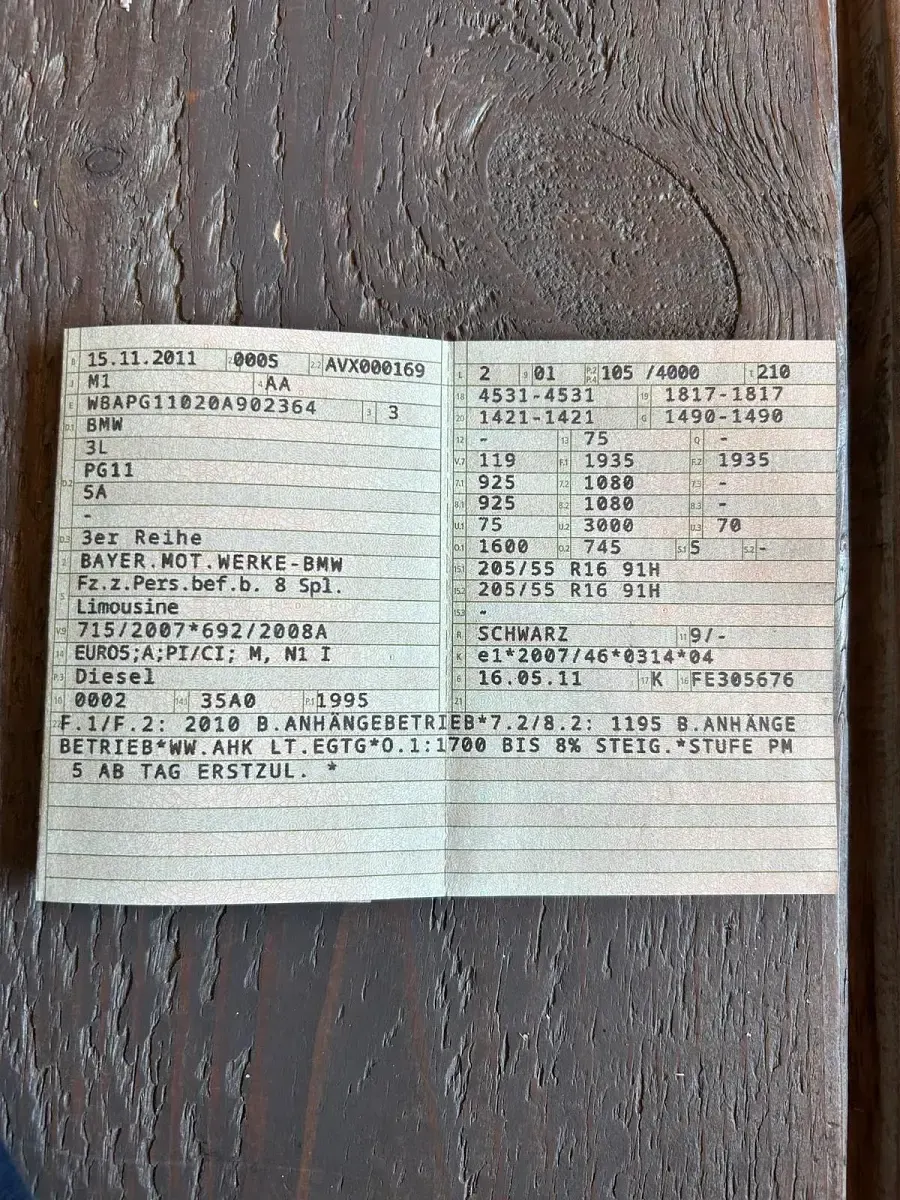 B 15.11.2011 0005 2.2 AVX000169
J M1 4 AA
E WBAPG11020A902364 3 3
D.1 BMW
3L
D.2 PG11
5A
-
D.3 3er Reihe
2 BAYER.MOT.WERKE-BMW
5 Fz.z.Pers.bef.b. 8 Spl.
Limousine
V.9 715/2007*692/2008A
14 EURO5;A;PI/CI; M, N1 I
P.3 Diesel
10 0002 14.1 35A0 P.1 1995
L 2 9 01 P.2 P.4 105 /4000 T 210
18 4531-4531 19 1817-1817
20 1421-1421 G 1490-1490
12 - 13 75 Q -
V.7 119 F.1 1935 F.2 1935
7.1 925 7.2 1080 7.3 -
8.1 925 8.2 1080 8.3 -
U.1 75 U.2 3000 U.3 70
O.1 1600 O.2 745 S.1 5 S.2 -
15.1 205/55 R16 91H
15.2 205/55 R16 91H
15.3 -
R SCHWARZ 11 9/-
K e1*2007/46*0314*04
6 16.05.11 17 K 16 FE305676
21
22 F.1/F.2: 2010 B.ANHÄNGEBETRIEB*7.2/8.2: 1195 B.ANHÄNGE
BETRIEB*WW.AHK LT.EGTG*O.1:1700 BIS 8% STEIG.*STUFE PM
5 AB TAG ERSTZUL. *